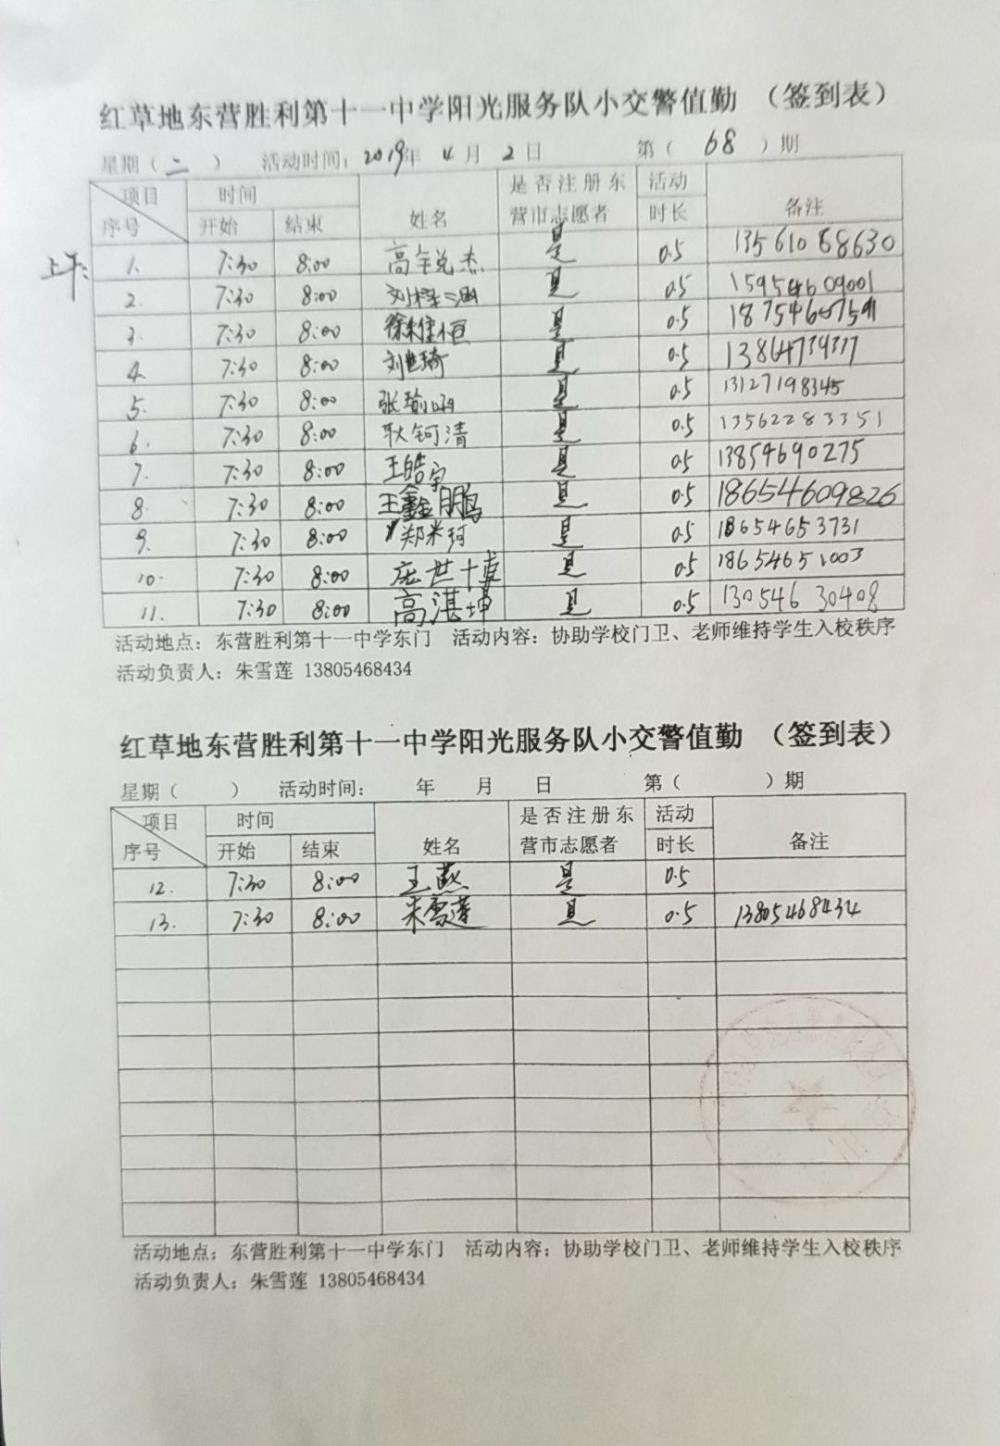 红草地东营胜利第十一中学阳光服务队小交警值勤 （签到表）
星期（二 ） 活动时间：2019年 4月 2日 第（ 68 ）期
项目 时间 是否注册东 活动
序号 开始 结束 姓名 营市志愿者 时长 备注
上午：
1. 7:30 8:00 是 0.5 13561088630
2. 7:30 8:00 是 0.5 15954609001
3. 7:30 8:00 徐维恒 是 0.5
4. 7:30 8:00 刘世琦 是 0.5 13864739317
5. 7:30 8:00 是 0.5 13127198345
6. 7:30 8:00 耿钶清 是 0.5 13562283351
7. 7:30 8:00 王皓宇 是 0.5 13854690275
8. 7:30 8:00 王鑫鹏 是 0.5 18654609826
9. 7:30 8:00 郑米珂 是 0.5 18654653731
10. 7:30 8:00 庞世博 是 0.5 18654651003
11. 7:30 8:00 高湛坤 是 0.5 13054630408
活动地点：东营胜利第十一中学东门 活动内容：协助学校门卫、老师维持学生入校秩序
活动负责人：朱雪莲 13805468434
红草地东营胜利第十一中学阳光服务队小交警值勤 （签到表）
星期（ ） 活动时间： 年 月 日 第（ ）期
项目 时间 是否注册东 活动
序号 开始 结束 姓名 营市志愿者 时长 备注
12. 7:30 8:00 王燕 是 0.5
13. 7:30 8:00 朱雪莲 是 0.5 13805468434
活动地点：东营胜利第十一中学东门 活动内容：协助学校门卫、老师维持学生入校秩序
活动负责人：朱雪莲 13805468434